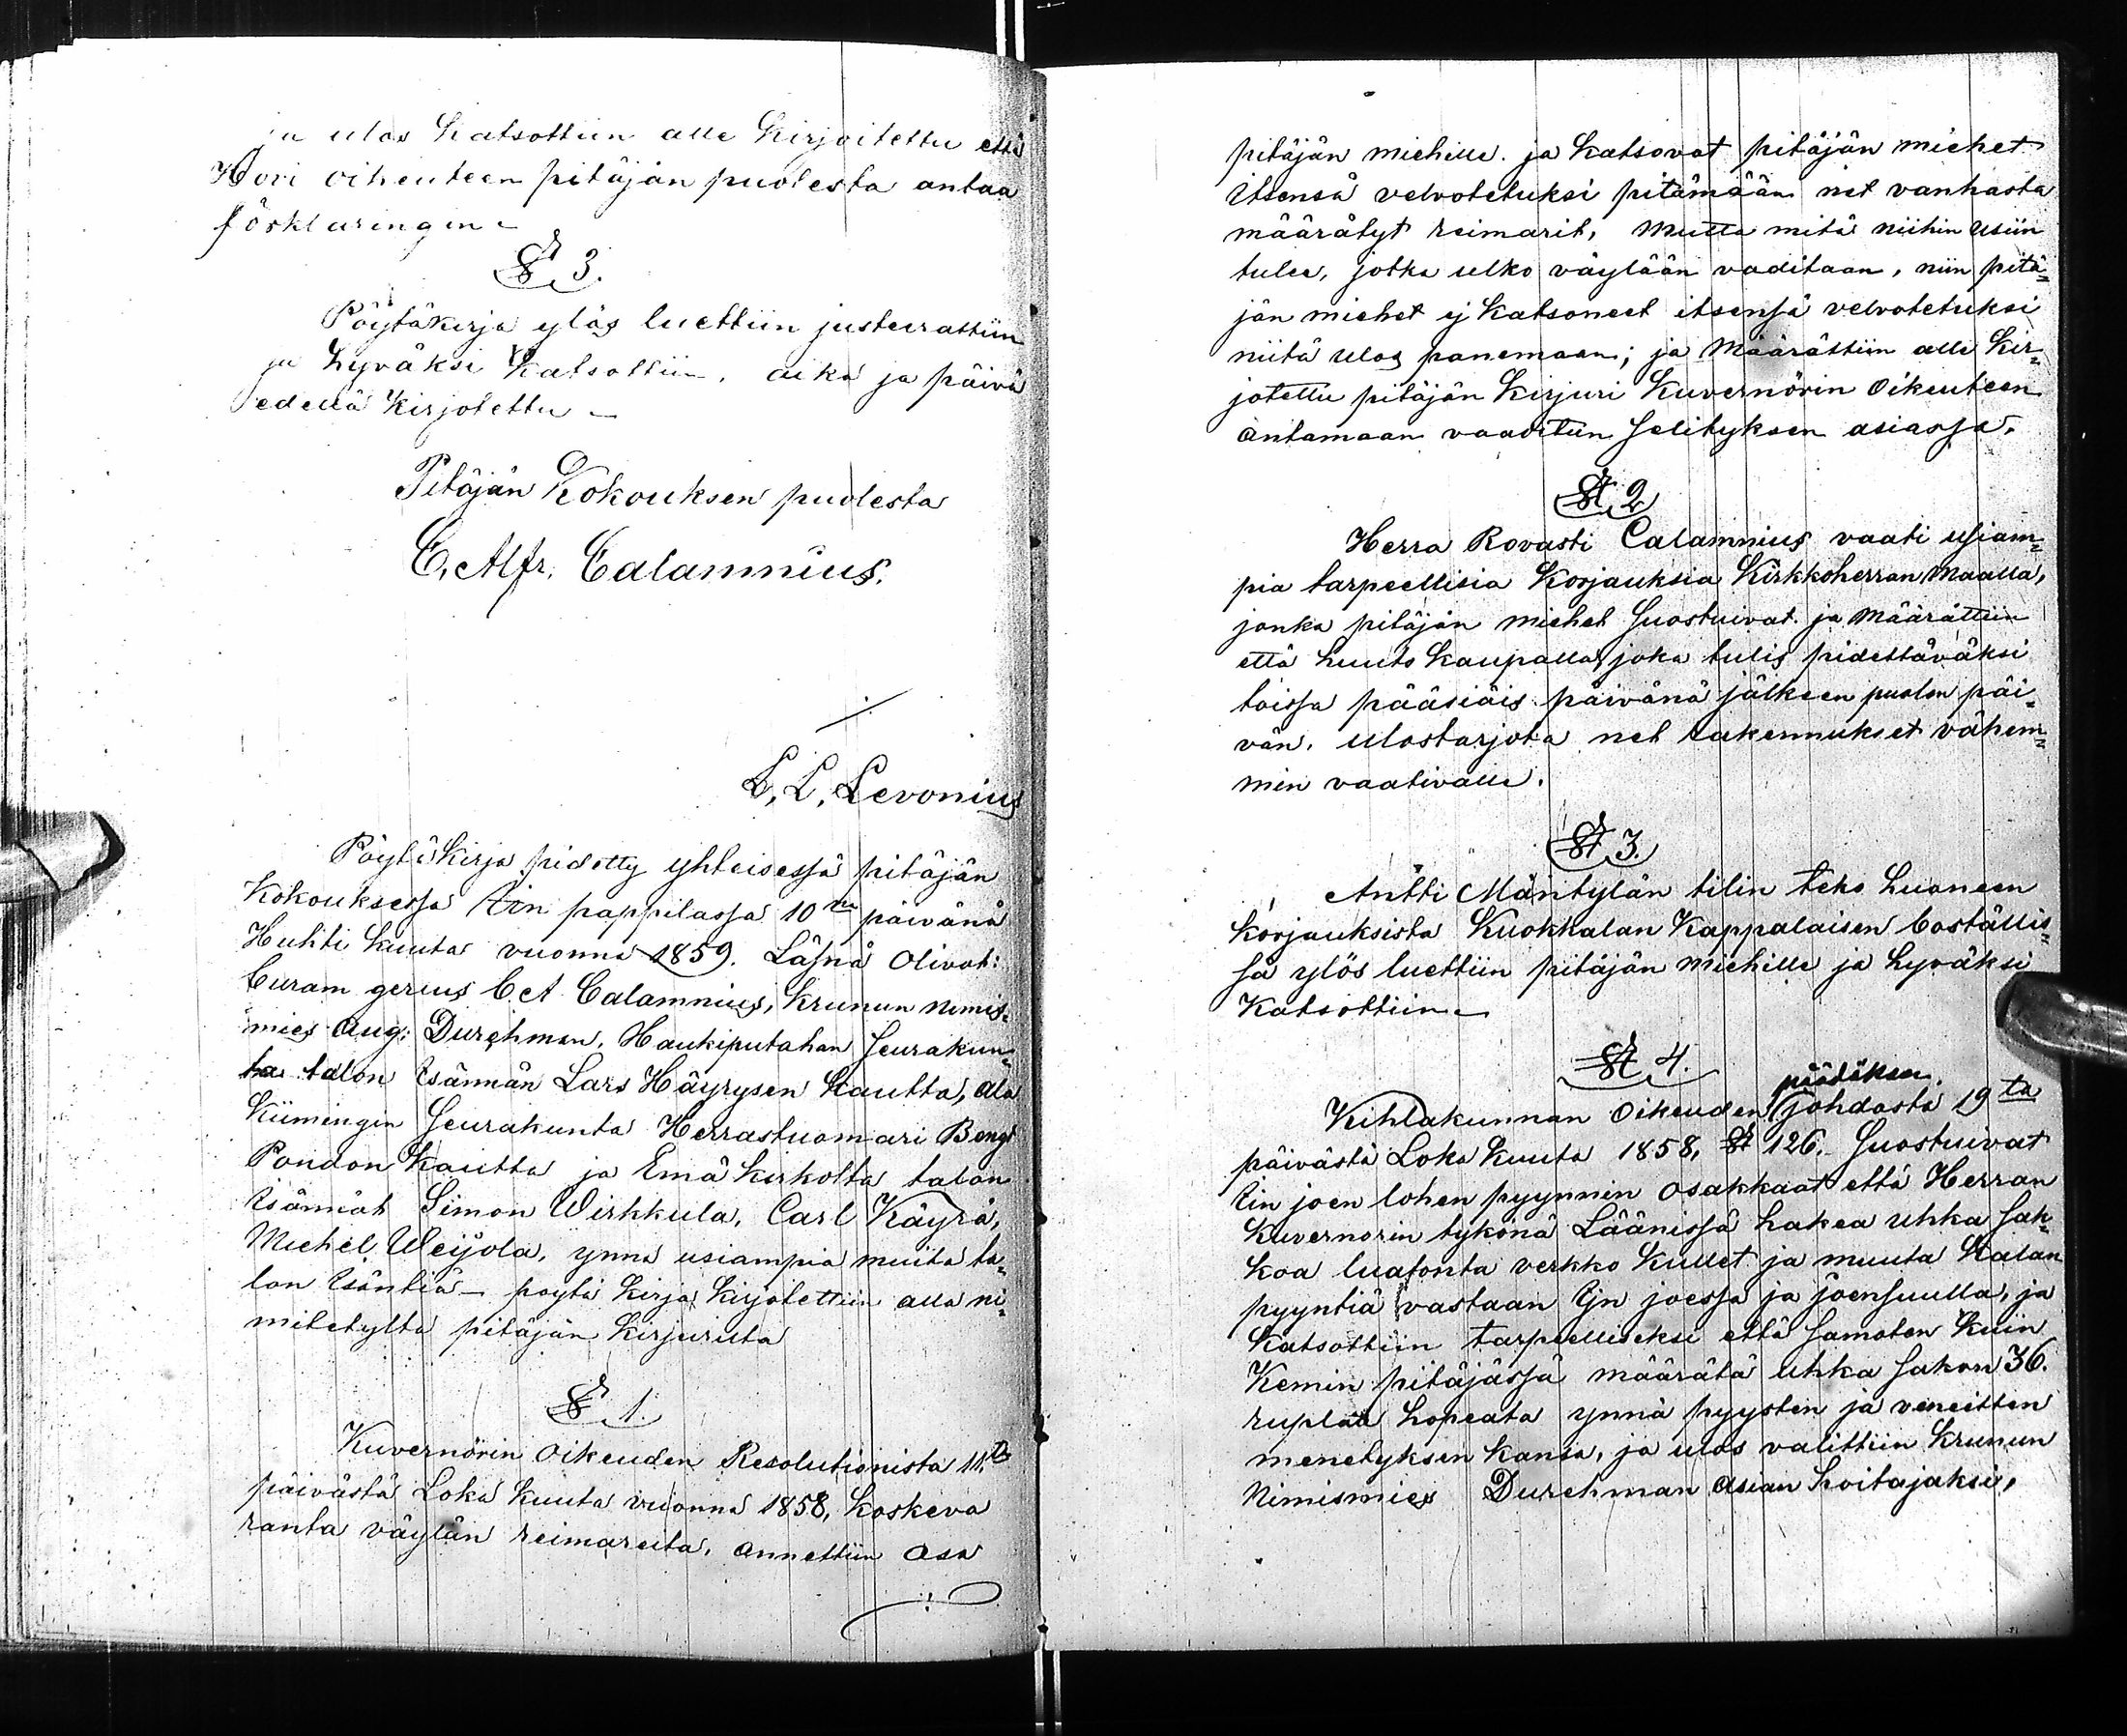 ja ulos katsottiin alle kirjoitettu että
Hovi oikeuteen pitäjän puolesta antaa
förklaringin.
§ 3.
Pöytäkirja ylös luettiin justeerattiin
ja hyväksi katsottiin, aika ja päivä
edellä kirjotettu
Pitäjän Kokouksen puolesta
C. Alfr. Calamnius.
L. L. Levonius
Pöytäkirja pidetty yhteisessä pitäjän
Kokouksessa Iin pappilassa 10nä päivänä
Huhti kuuta vuonna 1859. Läsnä Olivat:
Curam gerens C A Calamnius, Krunun nimis=
mies Aug: Durchman, Haukiputahan Seurakun=
ta talon Isännän Lars Häyrysen kautta, Ala
Kiimingin Seurakunta Herrastuomari Bengt
Pondon kautta ja Emä kirkolta talon
Isännät Simon Wirkkula, Carl Käyrä,
Michel Weijola, ynnä usiampia muita ta=
lon Isäntiä – pöytä kirja kirjotettiin alla ni=
mitetyltä pitäjän kirjurilta
§ 1.
Kuvernörin Oikeuden Resolutionista 11ta
päivästä Loka kuuta vuonna 1858, koskeva
ranta väylän reimareita, annettiin Osa
pitäjän miehille. ja katsovat pitäjän miehet
itsensä velvotetuksi pitämään net vanhasta
määrätyt reimarit, Mutta mitä niihin usiin
tulee, jotka ulko väylään vaditaan, niin pitä=
jän miehet ej katsoneet itsensä velvotetuksi
niitä ulos panemaan; ja Määrättiin alle kir=
jotettu pitäjän kirjuri Kuvernörin Oikeuteen
antamaan vaaditun selityksen asiassa.
§ 2
Herra Rovasti Calamnius vaati usiam=
pia tarpeellisia korjauksia Kirkkoherran Maalla,
jonka pitäjän miehet Suostuivat. ja Määrättiin
että huuto kaupalla, joka tulis pidettäväksi
toissa pääsiäis päivänä jälkeen puolen päi=
vän, ulostarjota net rakennukset vähem=
min vaativalle.
§ 3.
Antti Mäntylän tilin teko huoneen
korjauksista Kuokkalan Kappalaisen boställis=
sä ylös luettiin pitäjän miehille ja hyväksi
Katsottiin.
§ 4.
päätöksen
Kihlakunnan Oikeuden johdosta 19ta
päivästä Loka kuuta 1858, § 126. Suostuivat
Iin joen lohen pyynnin Osakkaat että Herran
Kuvernörin tykönä Läänissä hakea uhka sak=
koa luatonta verkko kullet ja muuta kalan
pyyntiä vastaan Ijn joessa ja joensuulla, ja
Katsottiin tarpeelliseksi että samoten kuin
Kemin pitäjässä määrätä uhka sakon 36.
ruplaa hopeata ynnä pyysten ja veneitten
menetyksen kansa, ja ulos valittiin krunun
Nimismies Durchman asian hoitajaksi,